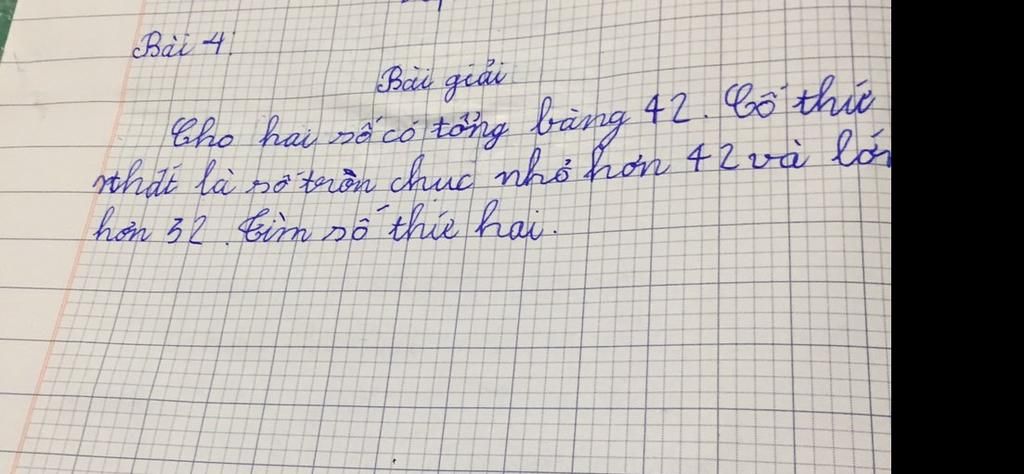 Bài 4:
Bài giải
Cho hai số có tổng bằng 42. Số thứ
nhất là số tròn chục nhỏ hơn 42 và lớn
hơn 32. Tìm số thứ hai.